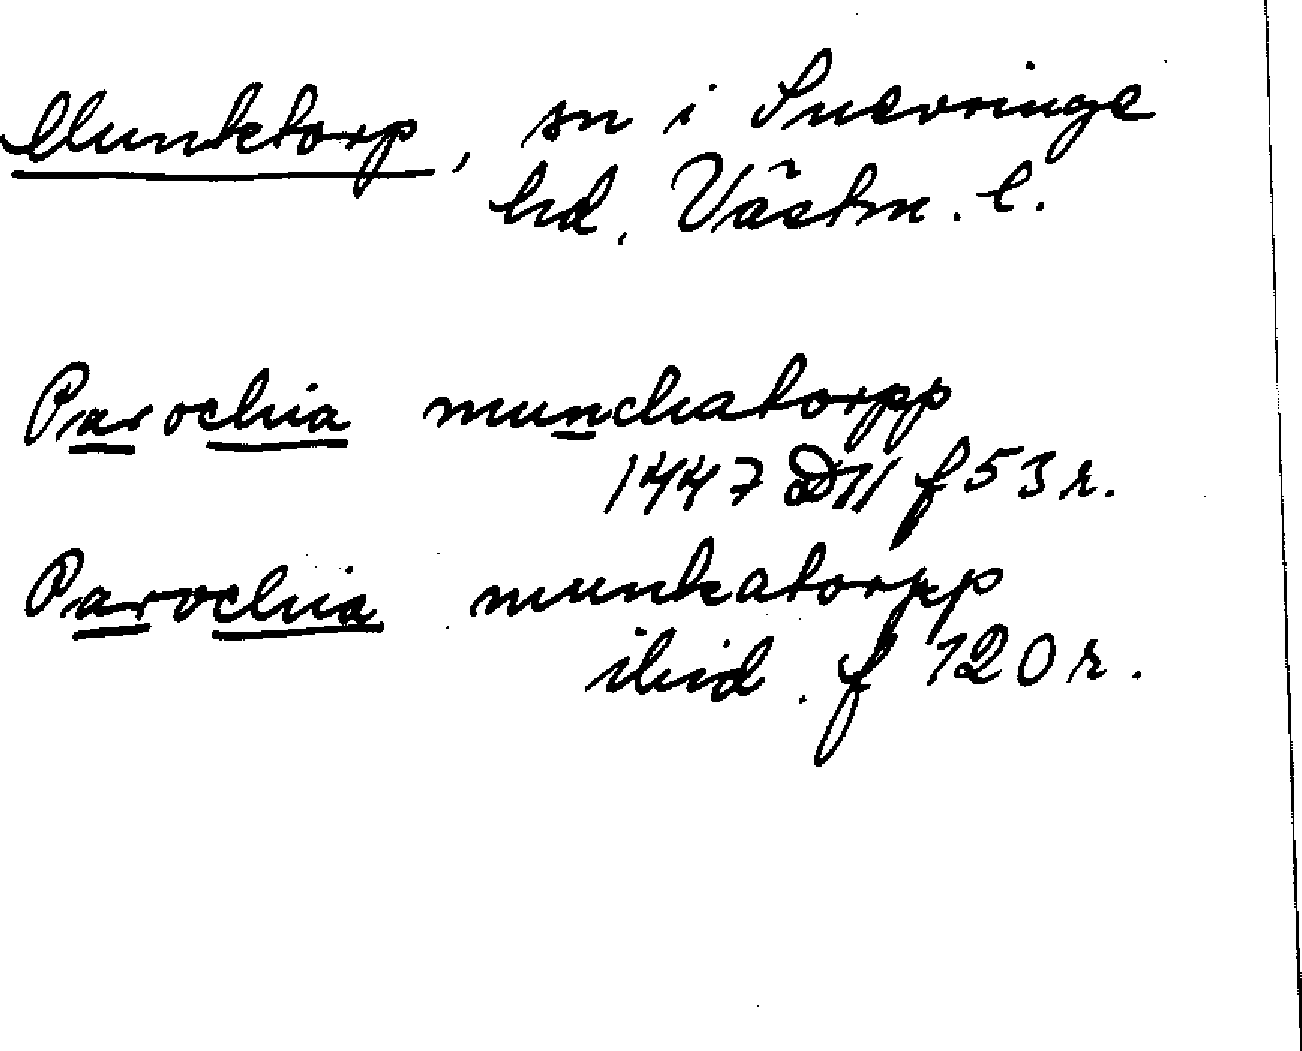 Munktorp, sn i Snevringe
hd, Västm. l.
Parochia munchatorpp
1447 D11 f 53 r.
Parochia munkatorpp
ibid. f 120 r.